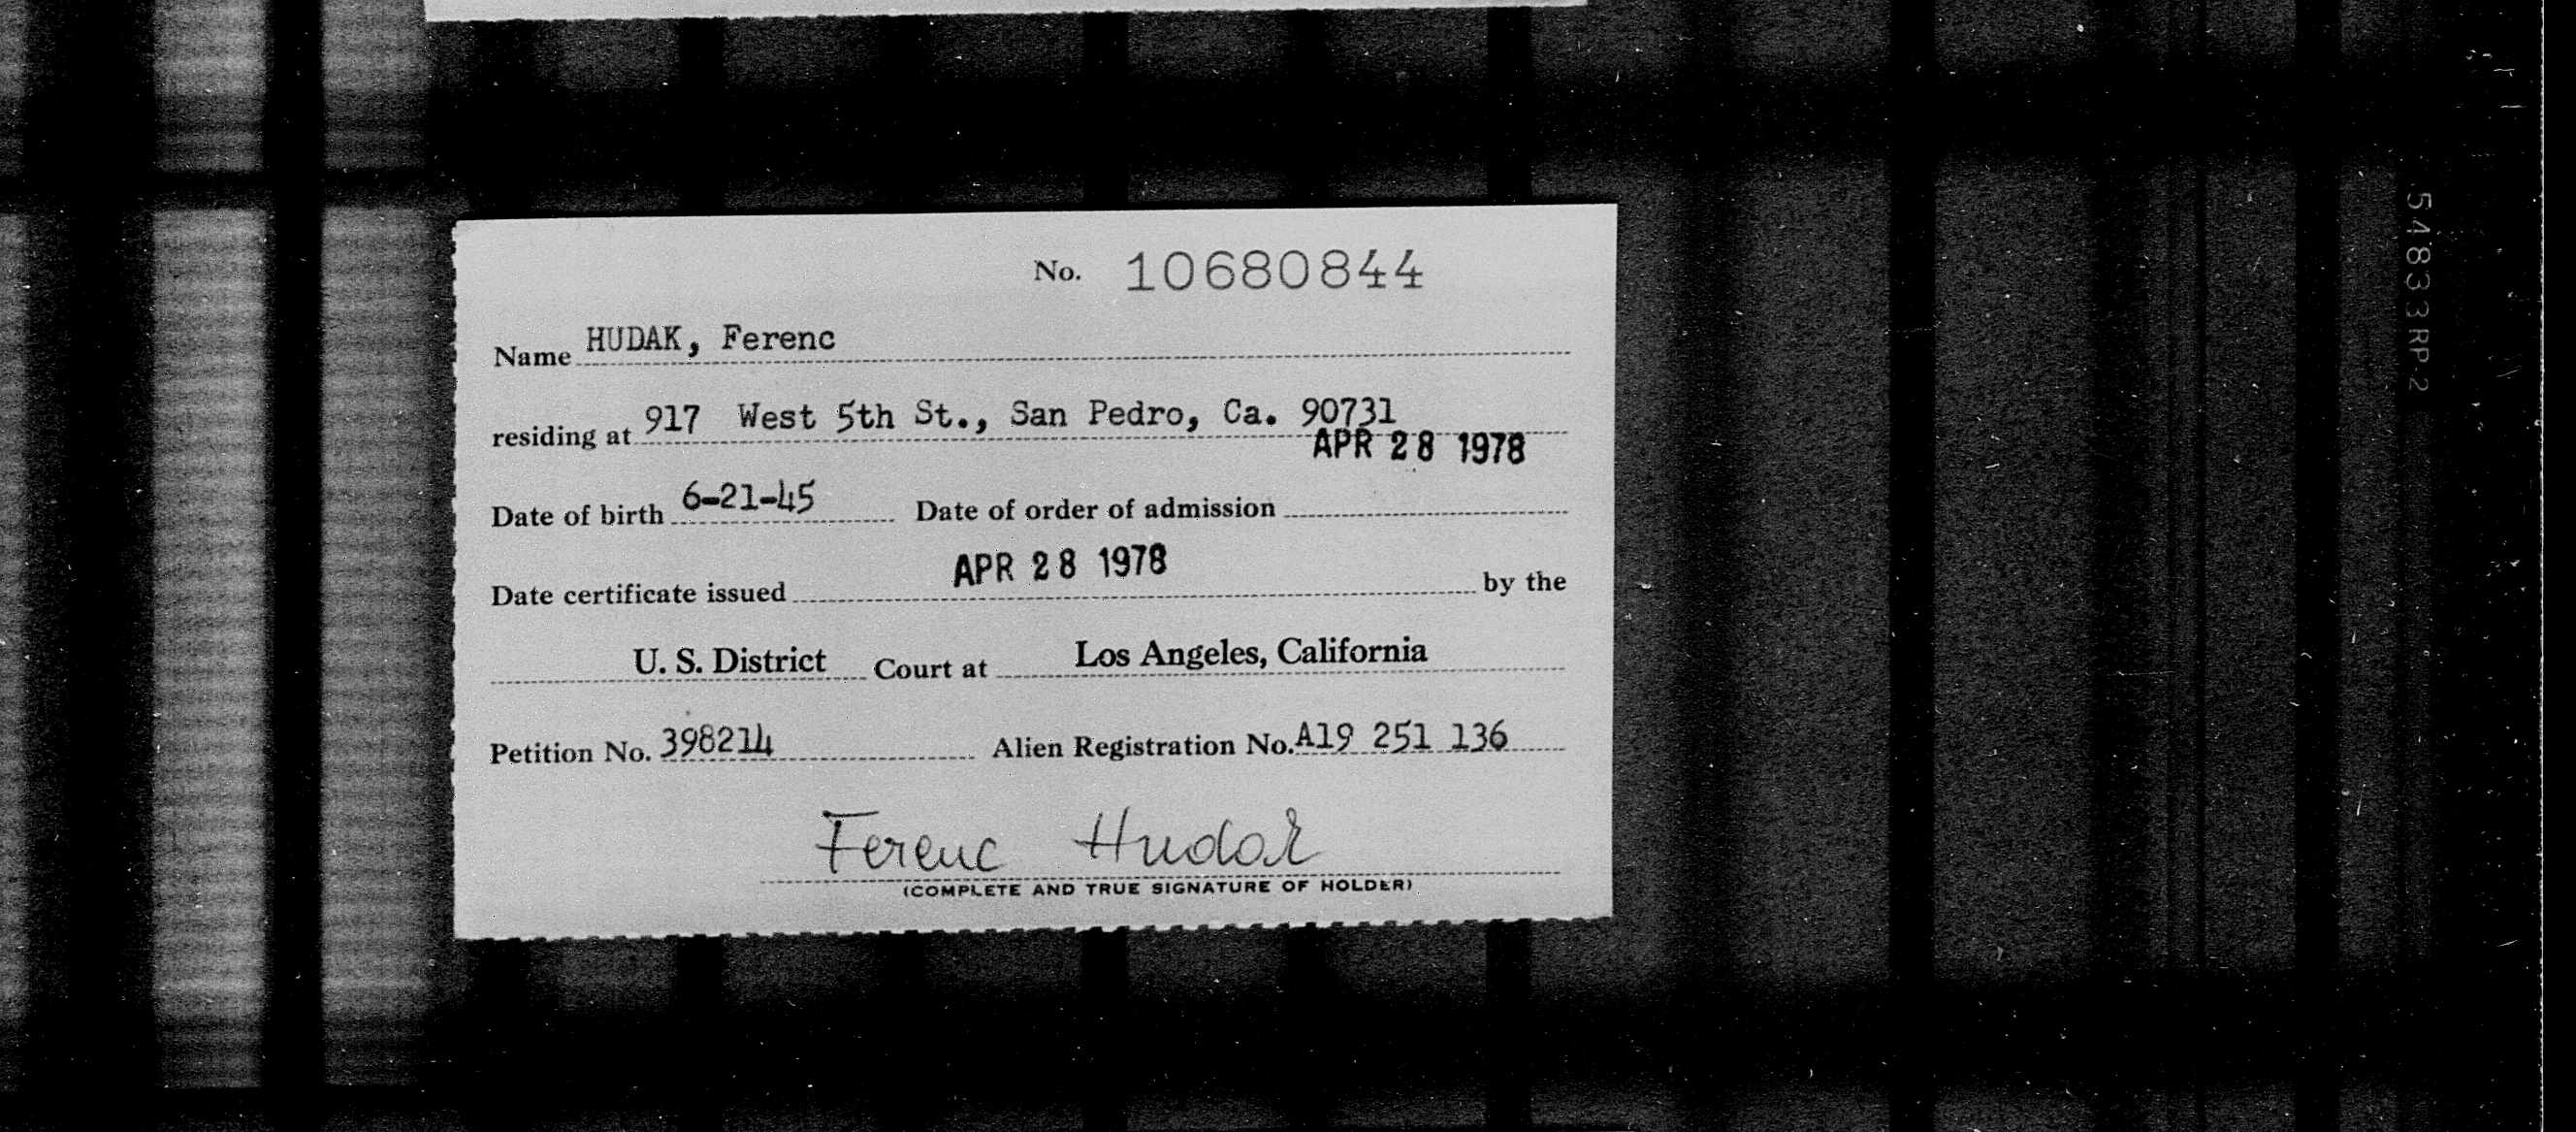 No. 10680844
Name HUDAK, Ferenc
residing at 917 West 5th St., San Pedro, Ca. 90731
APR 28 1978
Date of birth 6-21-45 Date of order of admission
Date certificate issued APR 28 1978 by the
U. S. District Court at Los Angeles, California
Petition No. 398214 Alien Registration No. A19 251 136
Ferenc Hudak
(COMPLETE AND TRUE SIGNATURE OF HOLDER)
54833RP-2